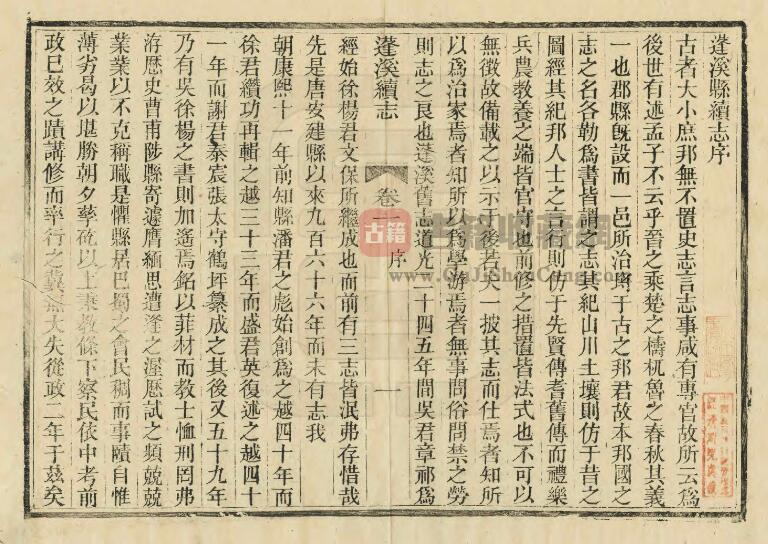 蓬溪縣續志序
古者大小庶邦無不置史志言志事咸有專官故所云爲
後世有述孟子不云乎晉之乘楚之檮杌魯之春秋其義
一也郡縣旣設而一邑所治擀于古之邦君故本邦國之
志之名各勒爲書皆謂之志其紀山川土壤則仿于昔之
圖經其紀邦人士之言行則仿于先賢傳耆舊傳而禮樂
兵農教養之端皆官守也前修之措置皆法式也不可以
無徵故備載之以示于後若夫一披其志而仕焉者知所
以爲治家焉者知所以爲學游焉者無事問俗問禁之勞
則志之良也蓬溪舊志道光二十四五年間吳君章祁爲
蓬溪續志
卷一
序
一
經始徐楊君文保所繼成也而前有三志皆泯弗存惜哉
先是唐安建縣以來九百六十六年而未有志我
朝康熙十一年前知縣潘君之彪始創爲之越四十年而
徐君纘功再輯之越三十三年而盛君英復述之越四十
一年而謝君泰宸張太守鶴坪纂成之其後又五十九年
乃有吳徐楊之書則加遙焉銘以菲材而教士恤刑罔弗
洊歷史曹甫陟縣寄遽膺緬思遭逢之渥歷試之頻兢兢
業業以不克稱職是懼縣居巴蜀之會民稠而事賾自惟
薄劣曷以堪勝朝夕孳矻以上秉教條下察民依中考前
政已效之蹟講修而率行之冀無大失從政二年于茲矣
古籍
古籍收藏網
www.GuJiShouCang.com